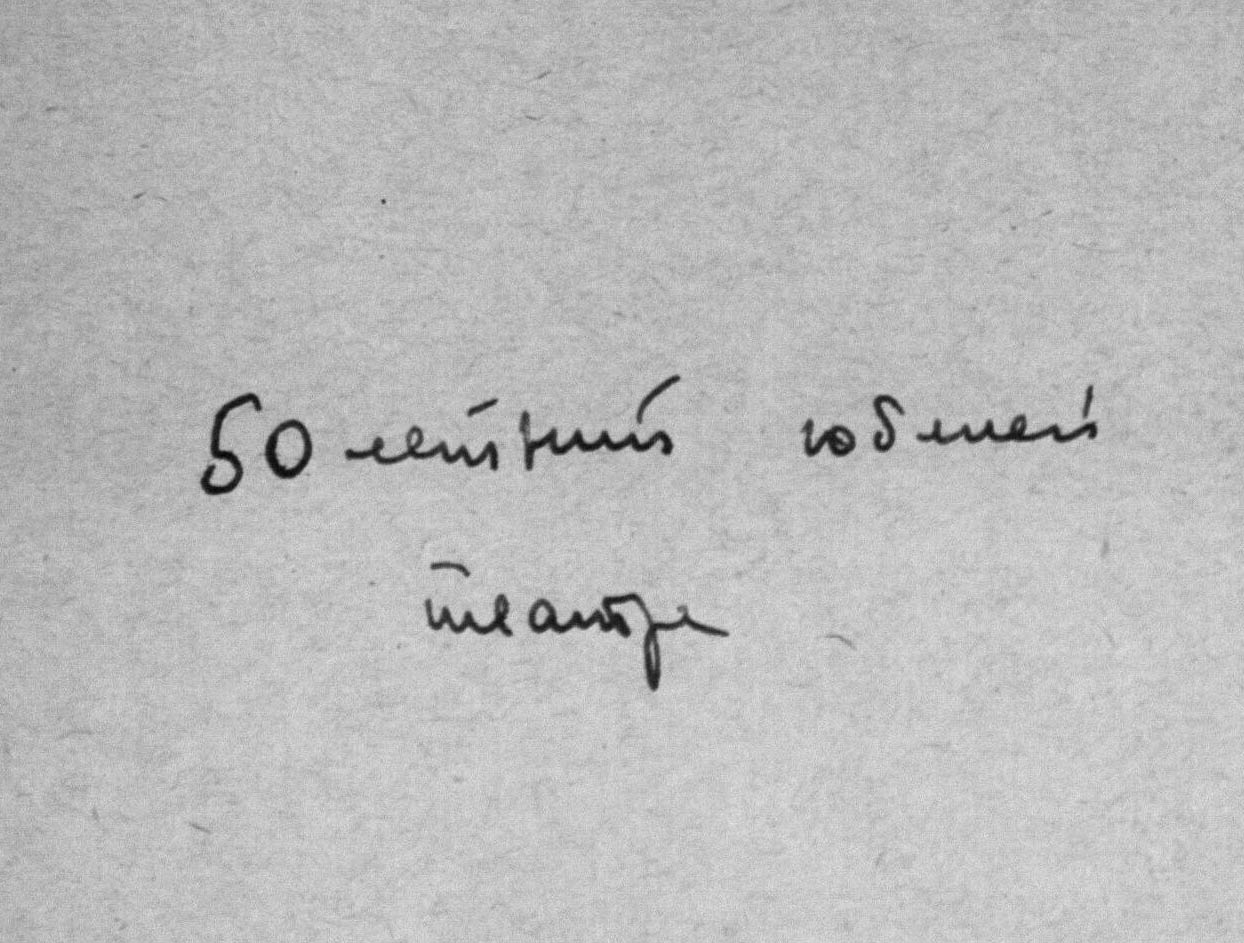 50 летний юбилей
театра